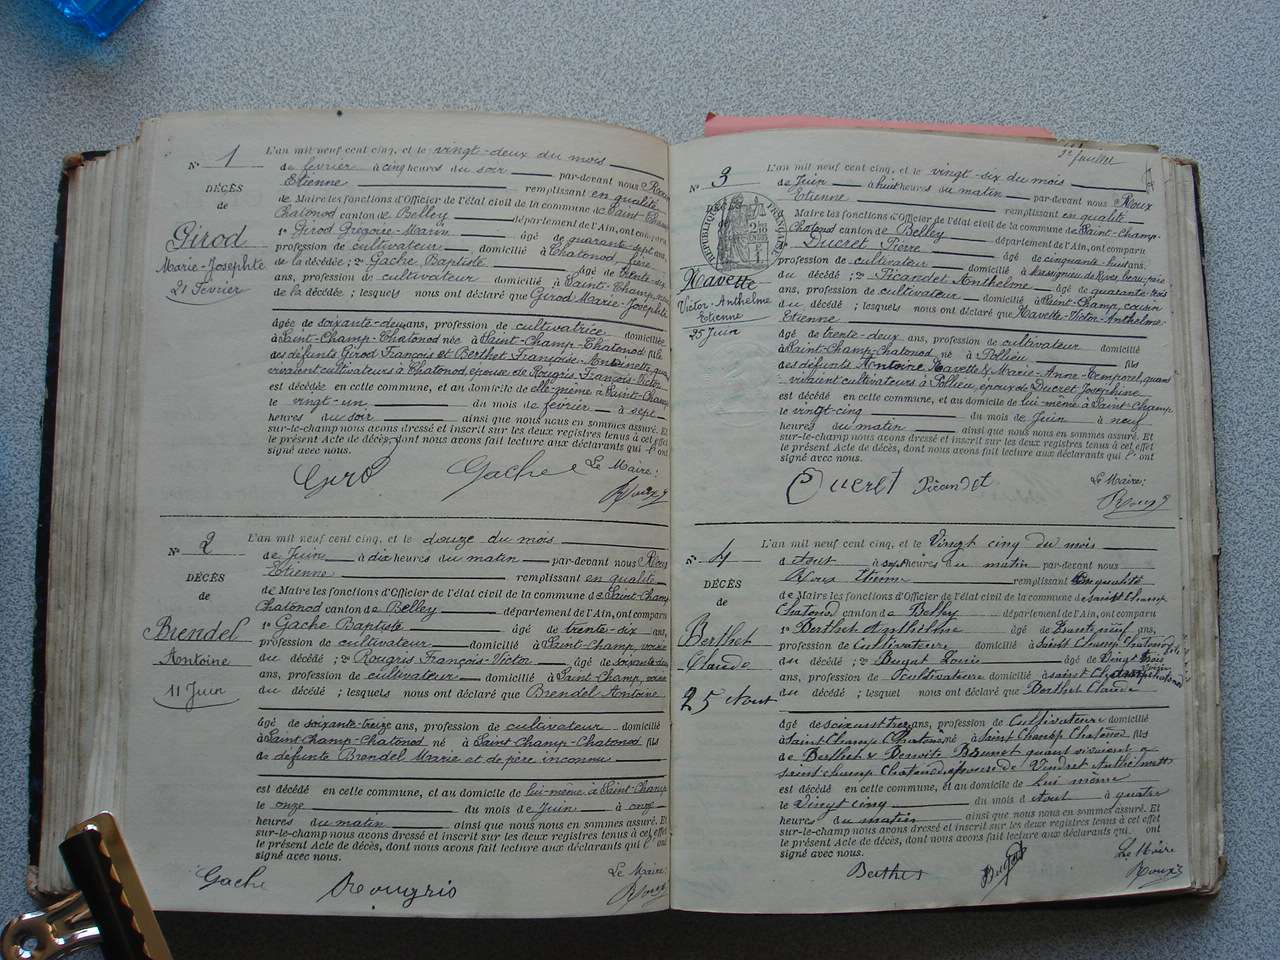 N° 1
DÉCÈS
de
Girod
Marie-Josephte
21 Février
L'an mil neuf cent cinq, et le vingt-deux du mois
de février à cinq heures du soir par-devant nous Roux
Etienne remplissant en qualité
de Maire les fonctions d'Officier de l'état civil de la commune de Saint-Champ
Chatonod canton de Belley département de l'Ain, ont comparu
1° Girod Grégoire-Marin âgé de quarante-sept ans,
profession de cultivateur domicilié à Chatonod, frère
de la décédée; 2° Gache Baptiste âgé de trente-six
ans, profession de cultivateur domicilié à Saint-Champ,
de la décédée; lesquels nous ont déclaré que Girod Marie-Josephte
âgée de soixante-deux ans, profession de cultivatrice domiciliée
à Saint-Champ-Chatonod née à Saint-Champ-Chatonod fille
des défunts Girod François et Berthet Françoise-Antoinette, quand
vivaient cultivateurs à Chatonod, épouse de Rougris François-Victor
est décédée en cette commune, et au domicile de elle-même à Saint-Champ
le vingt-un du mois de février à sept
heures du soir ainsi que nous nous en sommes assuré. Et
sur-le-champ nous avons dressé et inscrit sur les deux registres tenus à cet effet
le présent Acte de décès, dont nous avons fait lecture aux déclarants qui l'ont
signé avec nous.
Gache Le Maire:
Roux
N° 2
DÉCÈS
de
Brendel
Antoine
11 Juin
L'an mil neuf cent cinq, et le douze du mois
de Juin à dix heures du matin par-devant nous Roux
Etienne remplissant en qualité
de Maire les fonctions d'Officier de l'état civil de la commune de Saint-Champ
Chatonod canton de Belley département de l'Ain, ont comparu
1° Gache Baptiste âgé de trente-six ans,
profession de cultivateur domicilié à Saint-Champ, voisin
du décédé; 2° Rougris François-Victor âgé de soixante-
ans, profession de cultivateur domicilié à Saint-Champ, voisin
du décédé; lesquels nous ont déclaré que Brendel Antoine
âgé de soixante-treize ans, profession de cultivateur domicilié
à Saint-Champ-Chatonod né à Saint-Champ-Chatonod fils
de défunte Brendel Marie et de père inconnu
est décédé en cette commune, et au domicile de lui-même à Saint-Champ
le onze du mois de Juin à onze
heures du matin ainsi que nous nous en sommes assuré. Et
sur-le-champ nous avons dressé et inscrit sur les deux registres tenus à cet effet
le présent Acte de décès, dont nous avons fait lecture aux déclarants qui l'ont
signé avec nous.
Gache Rougris Le Maire:
Roux
N° 3
RÉPUBLIQUE FRANÇAISE
Navette
Victor-Anthelme
Etienne
25 Juin
L'an mil neuf cent cinq, et le vingt-six du mois
de Juin à huit heures du matin par-devant nous Roux
Etienne remplissant en qualité
Maire les fonctions d'Officier de l'état civil de la commune de Saint-Champ-
Chatonod canton de Belley département de l'Ain, ont comparu
1° Ducret Pierre âgé de cinquante-huit ans,
profession de cultivateur domicilié à Massignieu de Rives, beau-père
du décédé; 2° Picandet Anthelme âgé de quarante-trois
ans, profession de cultivateur domicilié à Saint-Champ, cousin
du décédé; lesquels nous ont déclaré que Navette-Victor-Anthelme-
Etienne
âgé de trente-deux ans, profession de cultivateur domicilié
à Saint-Champ-Chatonod né à Pollieu fils
des défunts Antoine Navette & Marie-Anne Temporel, quand
vivaient cultivateurs à Pollieu, époux de Ducret Joséphine
est décédé en cette commune, et au domicile de lui-même à Saint-Champ
le vingt-cinq du mois de Juin à neuf
heures du matin ainsi que nous nous en sommes assuré. Et
sur-le-champ nous avons dressé et inscrit sur les deux registres tenus à cet effet
le présent Acte de décès, dont nous avons fait lecture aux déclarants qui l'ont
signé avec nous.
Ducret Picandet Le Maire:
Roux
N° 4
DÉCÈS
de
Berthet
Claude
25 Aout
L'an mil neuf cent cinq, et le Vingt cinq du mois
d Aout à sept heures du matin par-devant nous
Roux Etienne remplissant en qualité
de Maire les fonctions d'Officier de l'état civil de la commune de Saint Champ
Chatonod canton de Belley département de l'Ain, ont comparu
1° Berthet Anthelme âgé de trente neuf ans,
profession de Cultivateur domicilié à Saint Champ Chatonod fils
du décédé; 2° Bugat Louis âgé de Vingt trois
ans, profession de Cultivateur domicilié à Saint Champ Chatonod voisin
du décédé; lesquel nous ont déclaré que Berthet Claude
âgé de soixante treize ans, profession de Cultivateur domicilié
à Saint Champ Chatonod né à Saint Champ Chatonod fils
de Berthet & Benoite Brunet quand vivaient à
Saint Champ Chatonod époux de Vindret Anthelmette
est décédé en cette commune, et au domicile de lui même
le Vingt cinq du mois d Aout à quatre
heures du matin ainsi que nous nous en sommes assuré. Et
sur-le-champ nous avons dressé et inscrit sur les deux registres tenus à cet effet
le présent Acte de décès, dont nous avons fait lecture aux déclarants qui ont
signé avec nous.
Berthet Bugat Le Maire
Roux